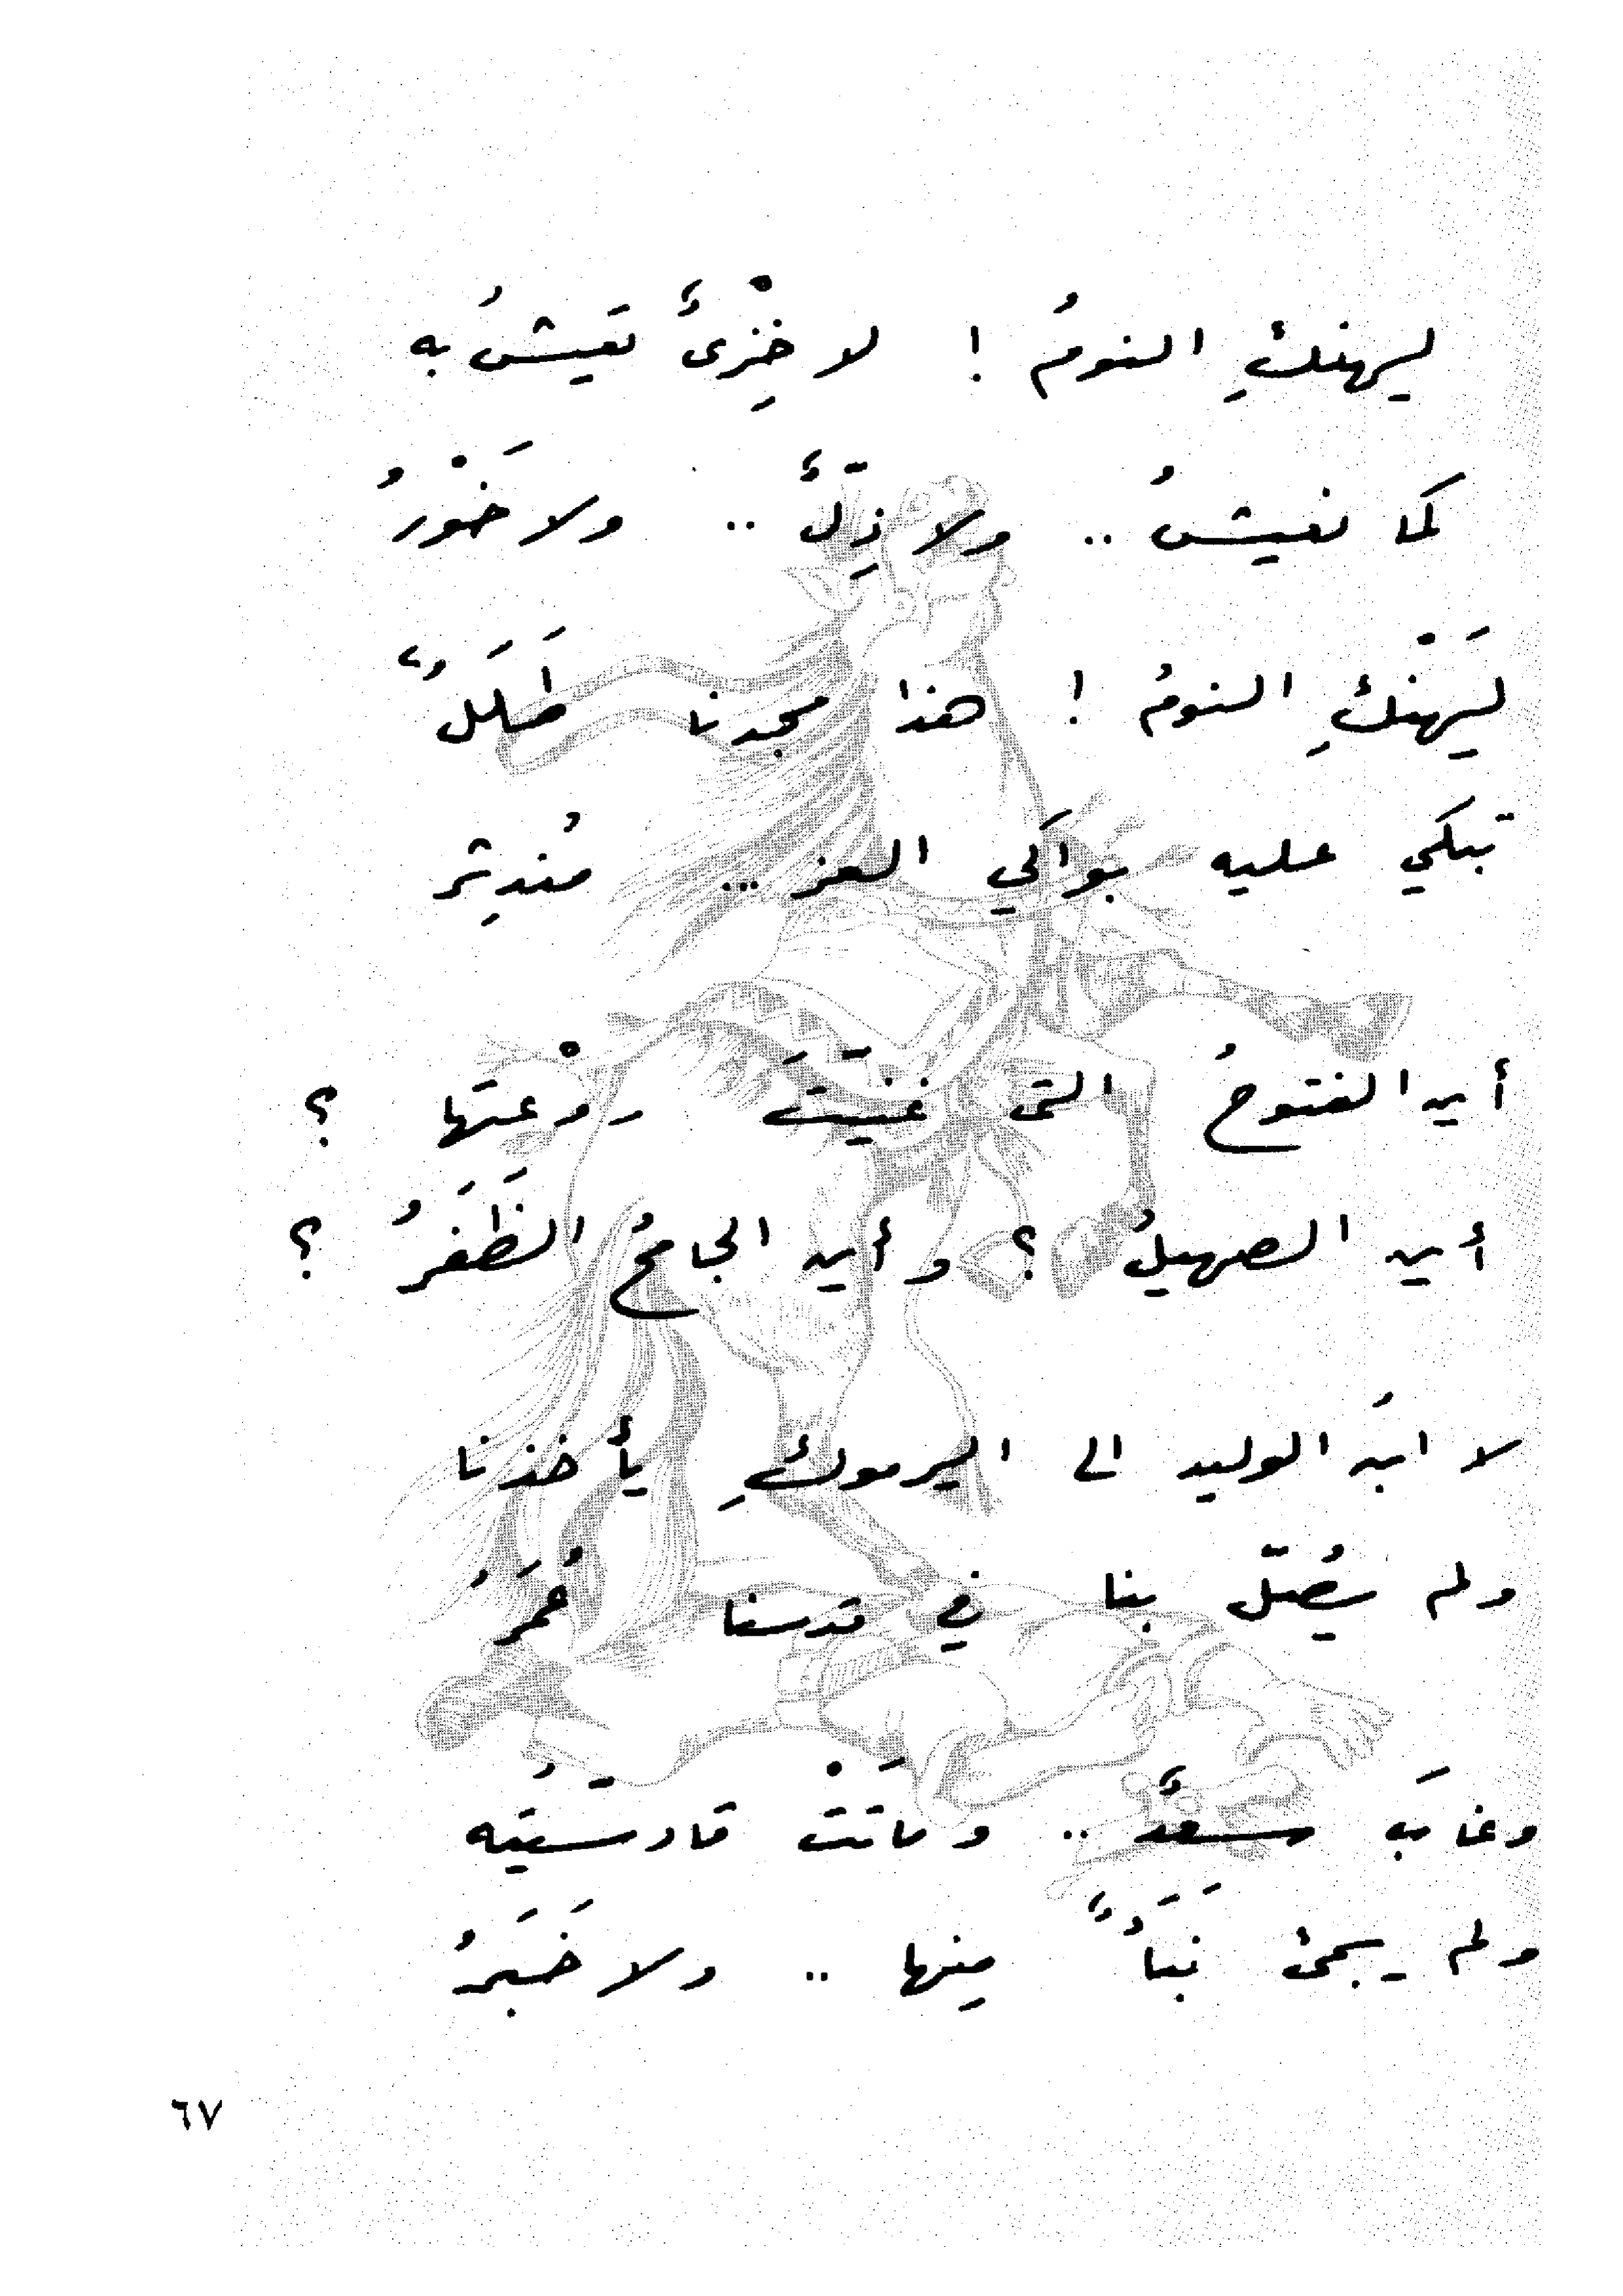 ليهنكِ النومُ ! لا خِزْىٌ تعيشُ به
كما نعيشُ .. ولا ذِلٌّ .. ولا خَوْرُ
ليَهْنكِ النومُ ! هذا مجدنا طَلَلٌ
تبكي عليه بواكي العز ... مُندثِر
أين الفتوحُ التى غنيّتَ روْعتَها ؟
أين الصهيلُ ؟ وأين الجامحُ الظَفَرُ ؟
لا ابنُ الوليد الى اليرموكِ يأخذنا
ولم يُصلّ بنا في قدسنا عُمَرُ
وغابَ سعدٌ .. وماتَتْ قادسيّتُه
ولم يجىْ نَبَأٌ مِنها .. ولا خَبَرُ
٦٧